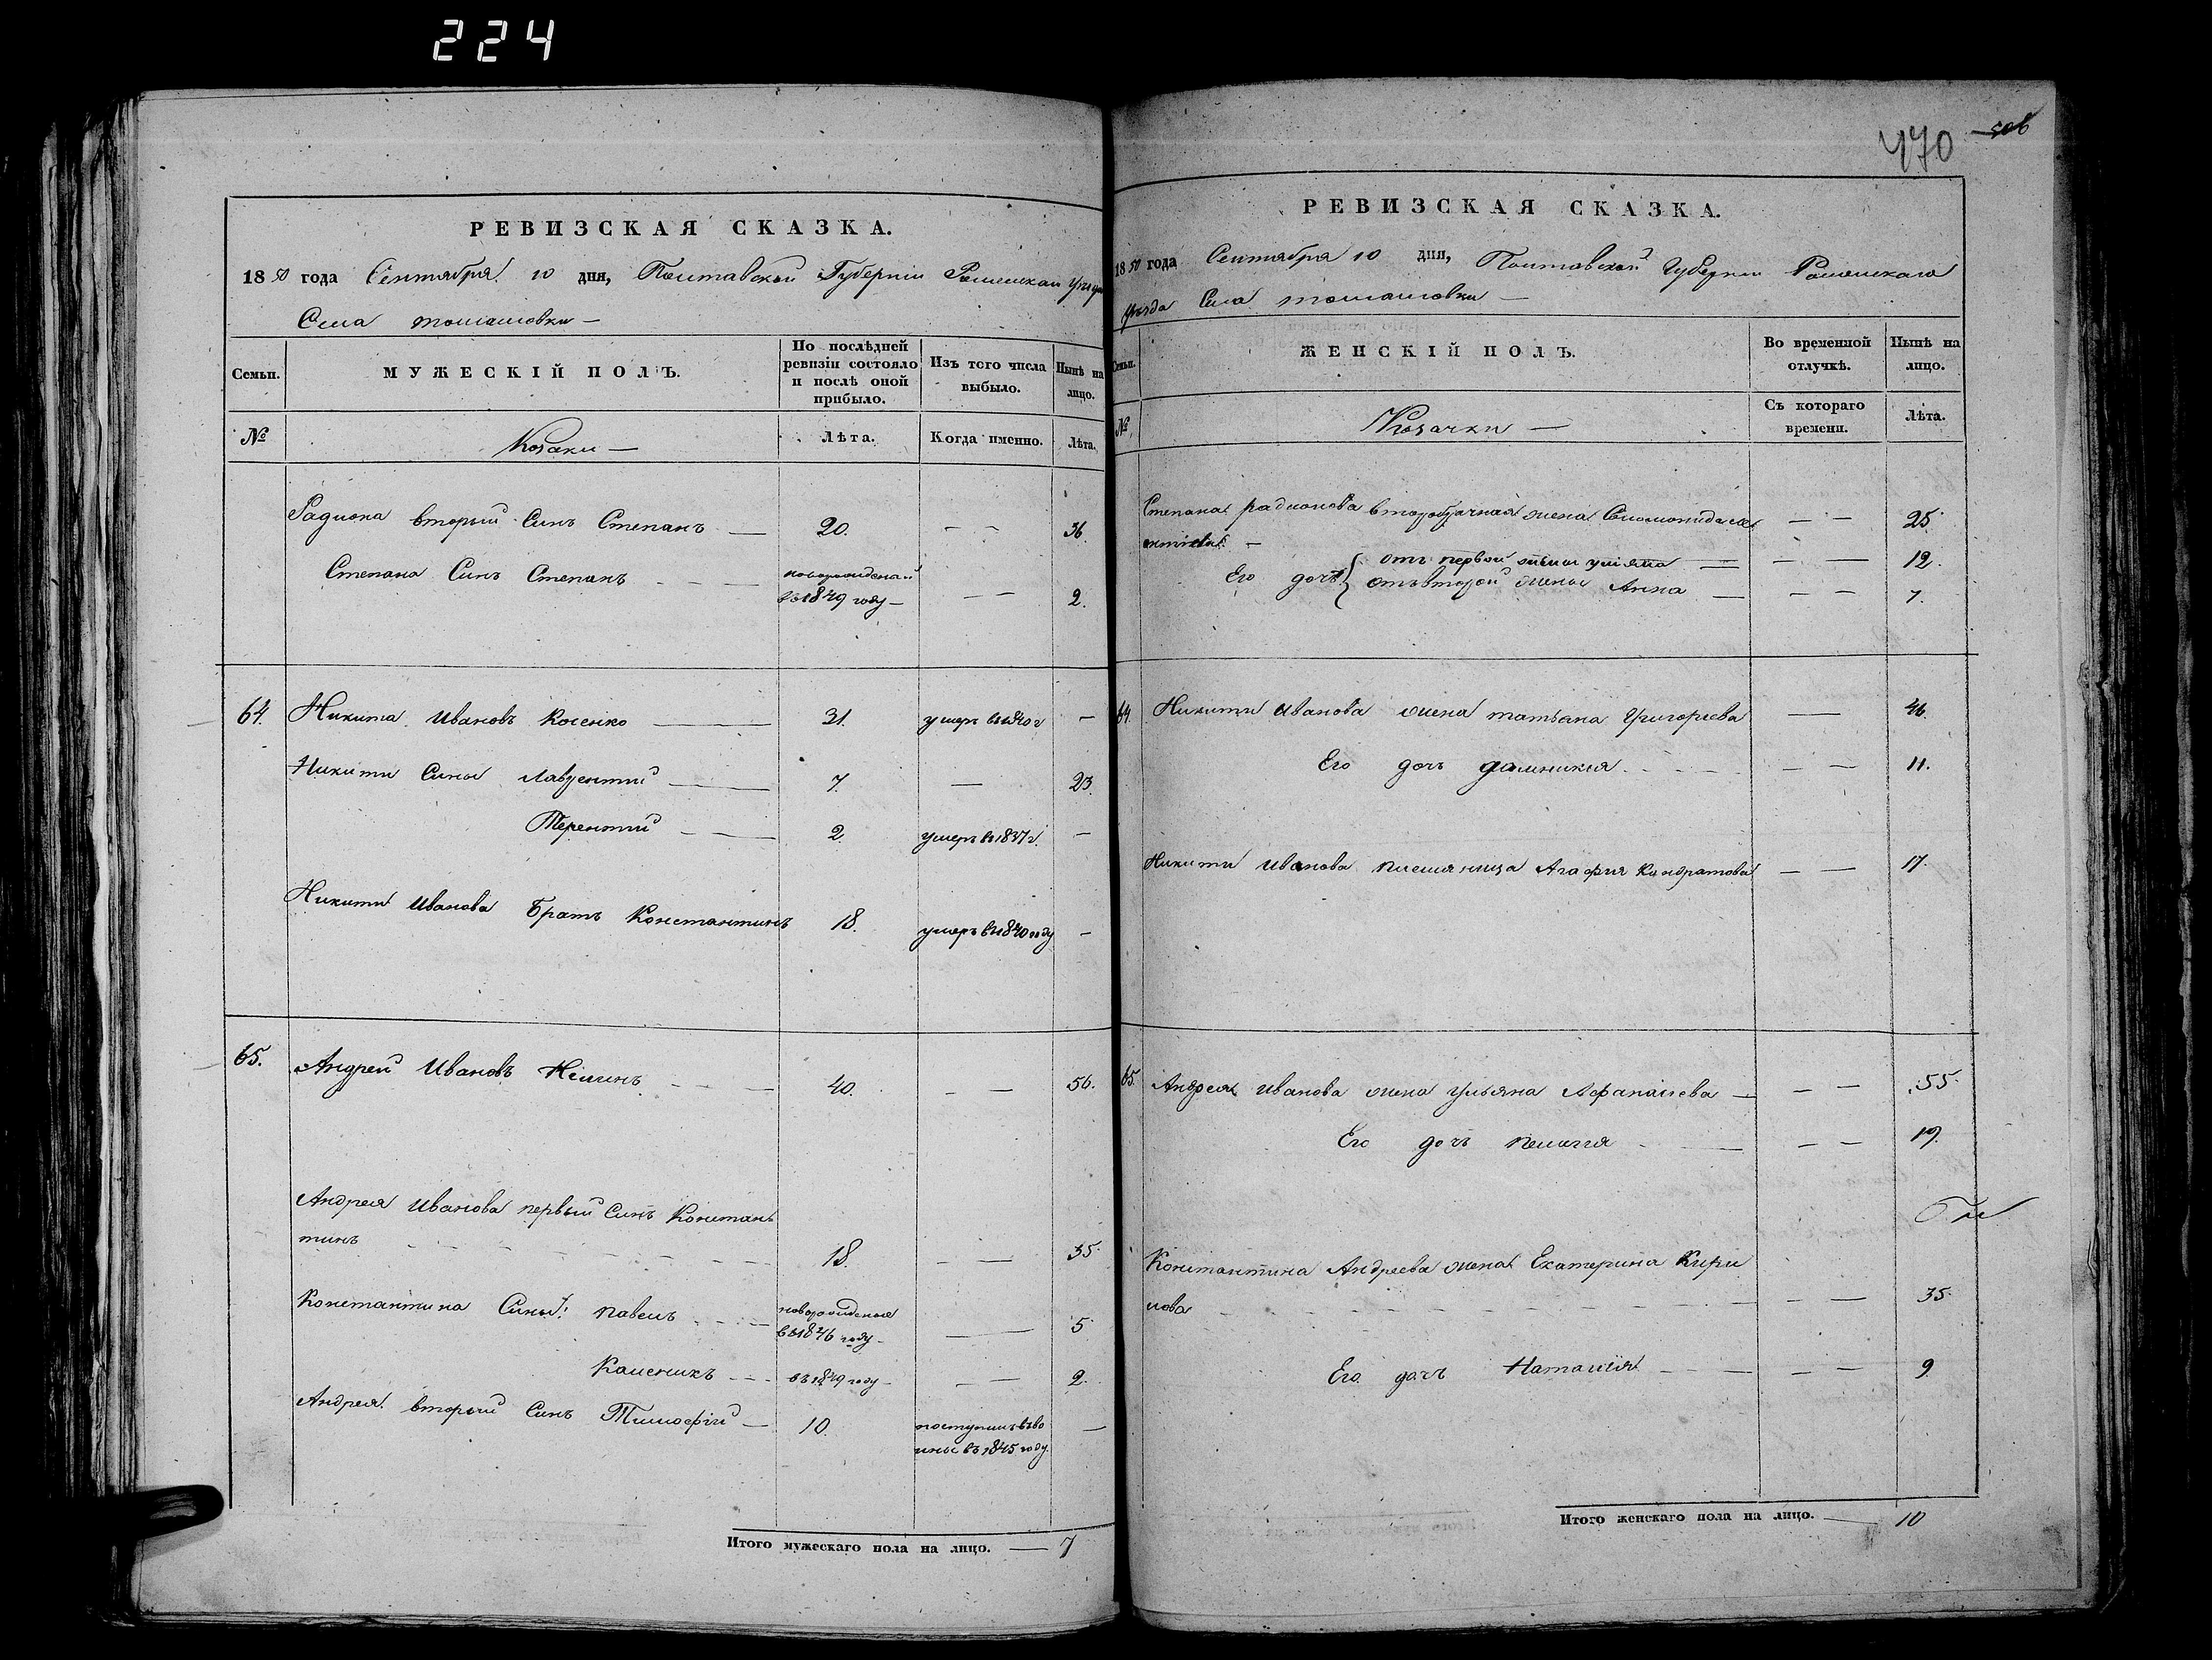 224
470 506
РЕВИЗСКАЯ СКАЗКА.
1850 года Сентября 10 дня, Полтавской Губернiи Роменскаго уезда
Села Томашовки —
Семьи. МУЖЕСКIЙ ПОЛЪ. По послѣдней ревизiи состояло и послѣ оной прибыло. Изъ того числа выбыло. Нынѣ на лицо.
№ Козаки — Лѣта. Когда именно. Лѣта.
Радиона вторый Синъ Степанъ — 20. — — 36.
Степана Синъ Степанъ - - - новорожденый
в 1849 году — — — 2.
64. Никита Ивановъ Косенко — 31. умеръ въ 1840 г —
Никити Сины Лаврентий — 7. — 23.
Терентий — 2. умеръ въ 1837 г. —
Никити Иванова Братъ Константинъ 18. умеръ въ 1840 году —
65. Андрей Ивановъ - - — 40. - — 56.
Андрея Иванова первый Синъ Констан
тинъ - - - - - 18. - — 35.
Константина Сины: Павелъ - - — новорожденые
въ 1846 году — — 5
- - - въ 1849 году — - — 2.
Андрея вторый Синъ Тимофiй — 10. поступилъ въ во
ины въ 1845 году. —
Итого мужескаго пола на лицо. — 7
РЕВИЗСКАЯ СКАЗКА.
1850 года Сентября 10 дня, Полтавской Губернии Роменскаго
уезда Села Томашовки —
Семьи. ЖЕНСКIЙ ПОЛЪ. Во временной отлучкѣ. Нынѣ на лицо.
№ Козачки — Съ котораго времени. Лѣта.
Степана радионова второбрачная жена — — 25.
Его дочъ { отъ первой жены — — — 12.
отъ второй жены Анна — — — 7.
64. Никити Иванова жена татьана Григорiева — 46.
Его дочъ - - - — — 11.
Никити Иванова племяница Агафия Кондратова — — 17.
65. Андрея Иванова жена Ульяна Афанасiева — — — 55.
Его дочъ пелагея - — — — 19.
Константина Андреева жена Екатерина Кири
лова - - - - - — — 35.
Его дочъ Наталия - — — — 9
Итого женскаго пола на лицо. — 10